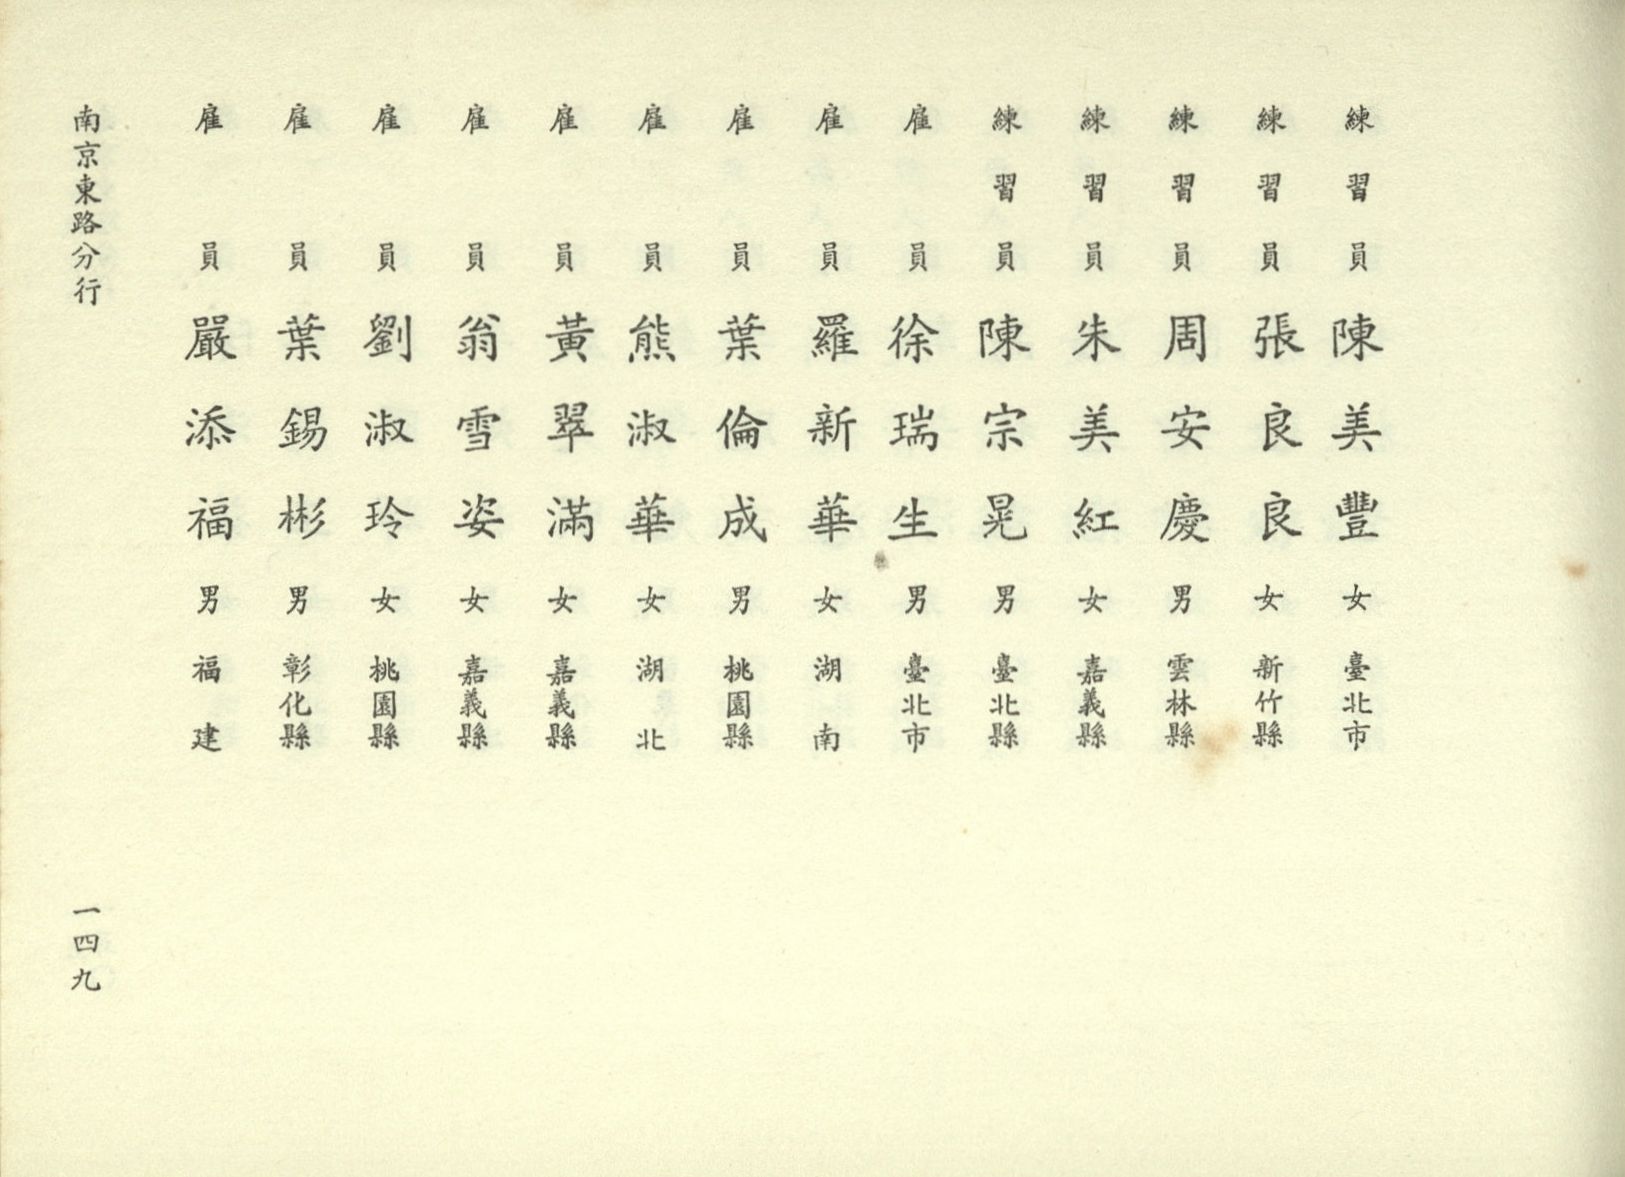 練習員 陳美豐 女 臺北市
練習員 張良良 女 新竹縣
練習員 周安慶 男 雲林縣
練習員 朱美紅 女 嘉義縣
練習員 陳宗晃 男 臺北縣
雇員 徐瑞生 男 臺北市
雇員 羅新華 女 湖南
雇員 葉倫成 男 桃園縣
雇員 熊淑華 女 湖北
雇員 黃翠滿 女 嘉義縣
雇員 翁雪姿 女 嘉義縣
雇員 劉淑玲 女 桃園縣
雇員 葉錫彬 男 彰化縣
雇員 嚴添福 男 福建
南京東路分行
一四九